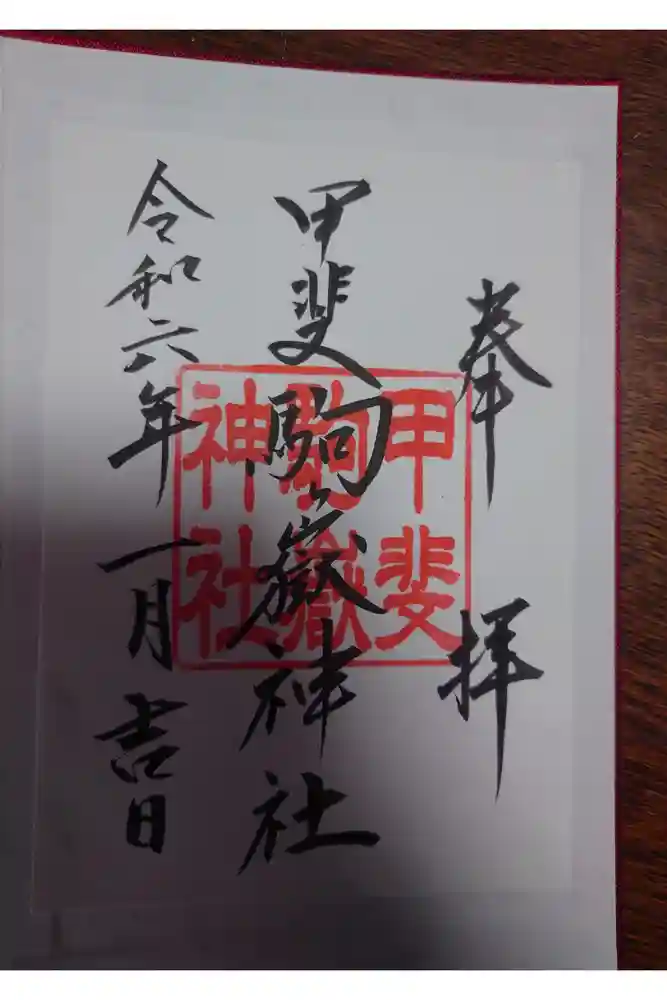 奉拝
甲斐駒ヶ嶽神社
令和六年一月吉日
甲斐
駒嶽
神社